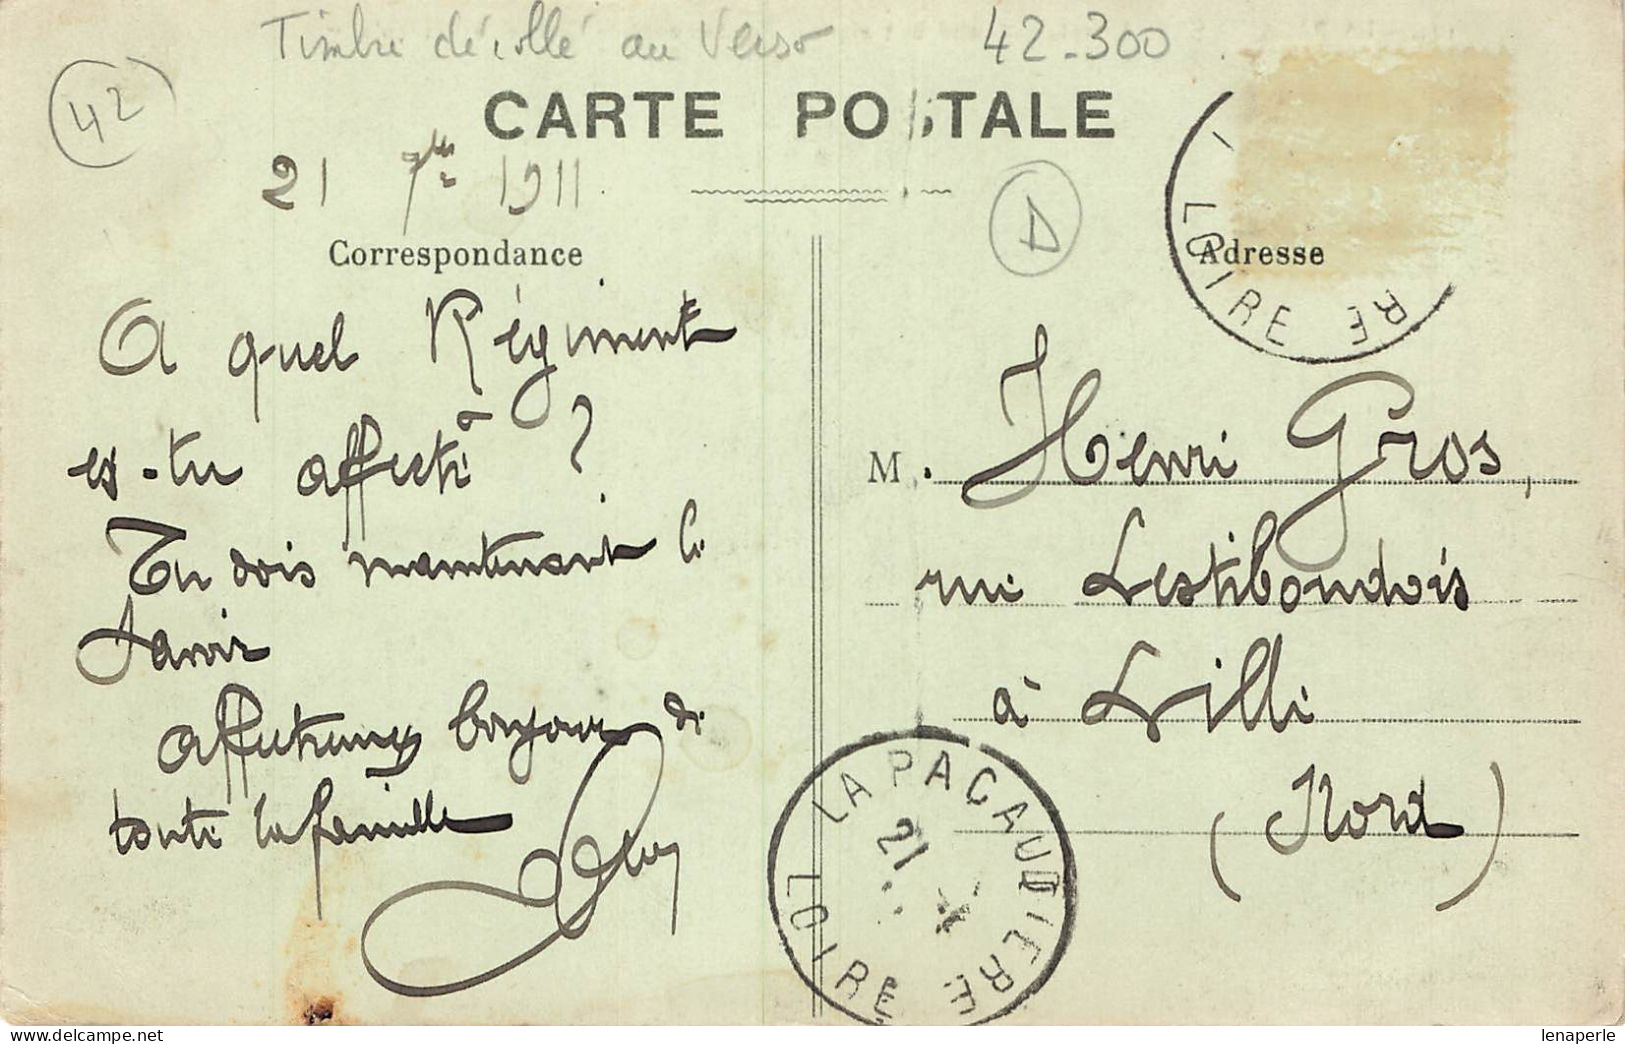 Timbre décollé au Verso 42-300
42
CARTE POSTALE
21 7bre 1911
Correspondance
Adresse
LOIRE
RE
A quel Régiment
es-tu affecté ?
Tu dois maintenant le
savoir
Affectueux bonjour de
toute la famille
M. Henri Gros,
rue Lestiboudois
à Lille
(Nord)
LA PACAUDIERE
21
LOIRE
lenaperle